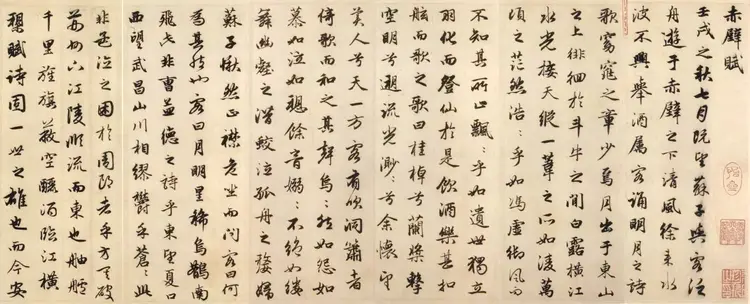 赤壁賦
壬戌之秋七月既望蘇子與客泛
舟遊于赤壁之下清風徐來水
波不興舉酒属客誦明月之詩
歌窈窕之章少焉月出于東山
之上徘徊於斗牛之間白露橫江
水光接天縱一葦之所如凌萬
頃之茫然浩〻乎如馮虛御風而
不知其所止飄〻乎如遺世獨立
羽化而登仙於是飲酒樂甚扣
舷而歌之歌曰桂棹兮蘭槳擊
空明兮遡流光渺〻兮余懷望
美人兮天一方客有吹洞簫者
倚歌而和之其聲烏〻然如怨如
慕如泣如愬餘音嫋〻不絕如縷
舞幽壑之潛蛟泣孤舟之嫠婦
蘇子愀然正襟危坐而問客曰何
為其然也客曰月明星稀烏鵲南
飛此非曹孟德之詩乎東望夏口
西望武昌山川相繆鬱乎蒼〻此
非孟德之困於周郎者乎方其破
荊州下江陵順流而東也舳艫
千里旌旗蔽空釃酒臨江橫
槊賦詩固一世之雄也而今安